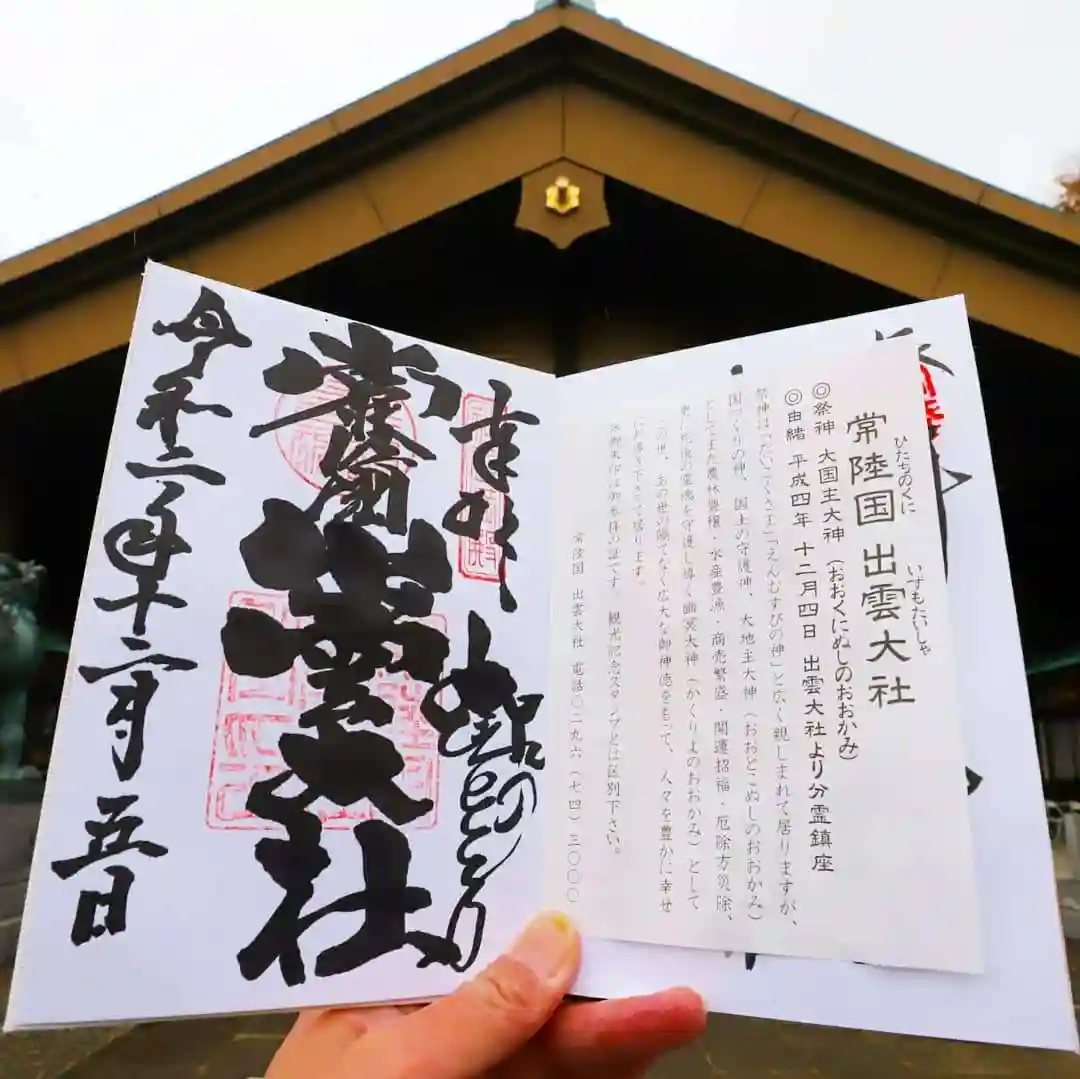 常陸国 出雲大社
ひたちのくに いずもたいしゃ
◎祭神 大国主大神(おおくにぬしのおおかみ)
◎由緒 平成四年 十二月四日 出雲大社より分霊鎮座
祭神は「だいこくさま」「えんむすびの神」と広く親しまれて居りますが、
国づくりの神、国土の守護神、大地主大神(おおとこぬしのおおかみ)
としてまた農林畧穣・水産豊漁・商売繁盛・開運招福・厄除方災除、
更に死後の霊魂を守護し導く幽冥大神(かくりよのおおかみ)として
この世、あの世の隔てなく広大な御神徳をもって、人々を豊かに幸せ
にお導き下さって居ります。
※御朱印は御参拝の証です。観光記念スタンプとは区別下さい。
常陸国 出雲大社 電話〇二九六(七四)三〇〇〇
幸魂
常陸国
出雲大社
令和二年十二月五日